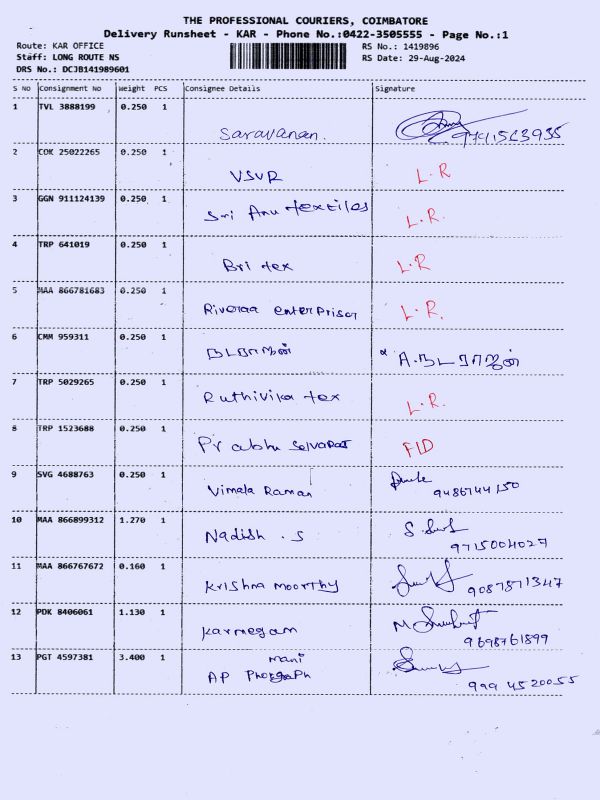 THE PROFESSIONAL COURIERS, COIMBATORE
Delivery Runsheet - KAR - Phone No.:0422-3505555 - Page No.:1
Route: KAR OFFICE RS No.: 1419896
Staff: LONG ROUTE NS RS Date: 29-Aug-2024
DRS No.: DCJB141989601
S No Consignment No Weight PCS Consignee Details Signature
1 TVL 3888199 0.250 1
Saravanan.
2 COK 25022265 0.250 1
VSVR L.R
3 GGN 911124139 0.250 1
Sri Anu textiles L.R.
4 TRP 641019 0.250 1
Bri tex L.R
5 MAA 866781683 0.250 1
Riveraa enterprisor L.R.
6 CMM 959311 0.250 1
நடராஜன் A.நடராஜன்
7 TRP 5029265 0.250 1
Ruthivika tex L.R.
8 TRP 1523688 0.250 1
Prabhu Selvaraj F1D
9 SVG 4688763 0.250 1
Vimala Raman 9486744150
10 MAA 866899312 1.270 1
Nadish . S 9715004027
11 MAA 866767672 0.160 1
Krishna moorthy 9087871347
12 PDK 8406061 1.130 1
Karmegam 9698761899
13 PGT 4597381 3.400 1
mani
AP 999 4520055